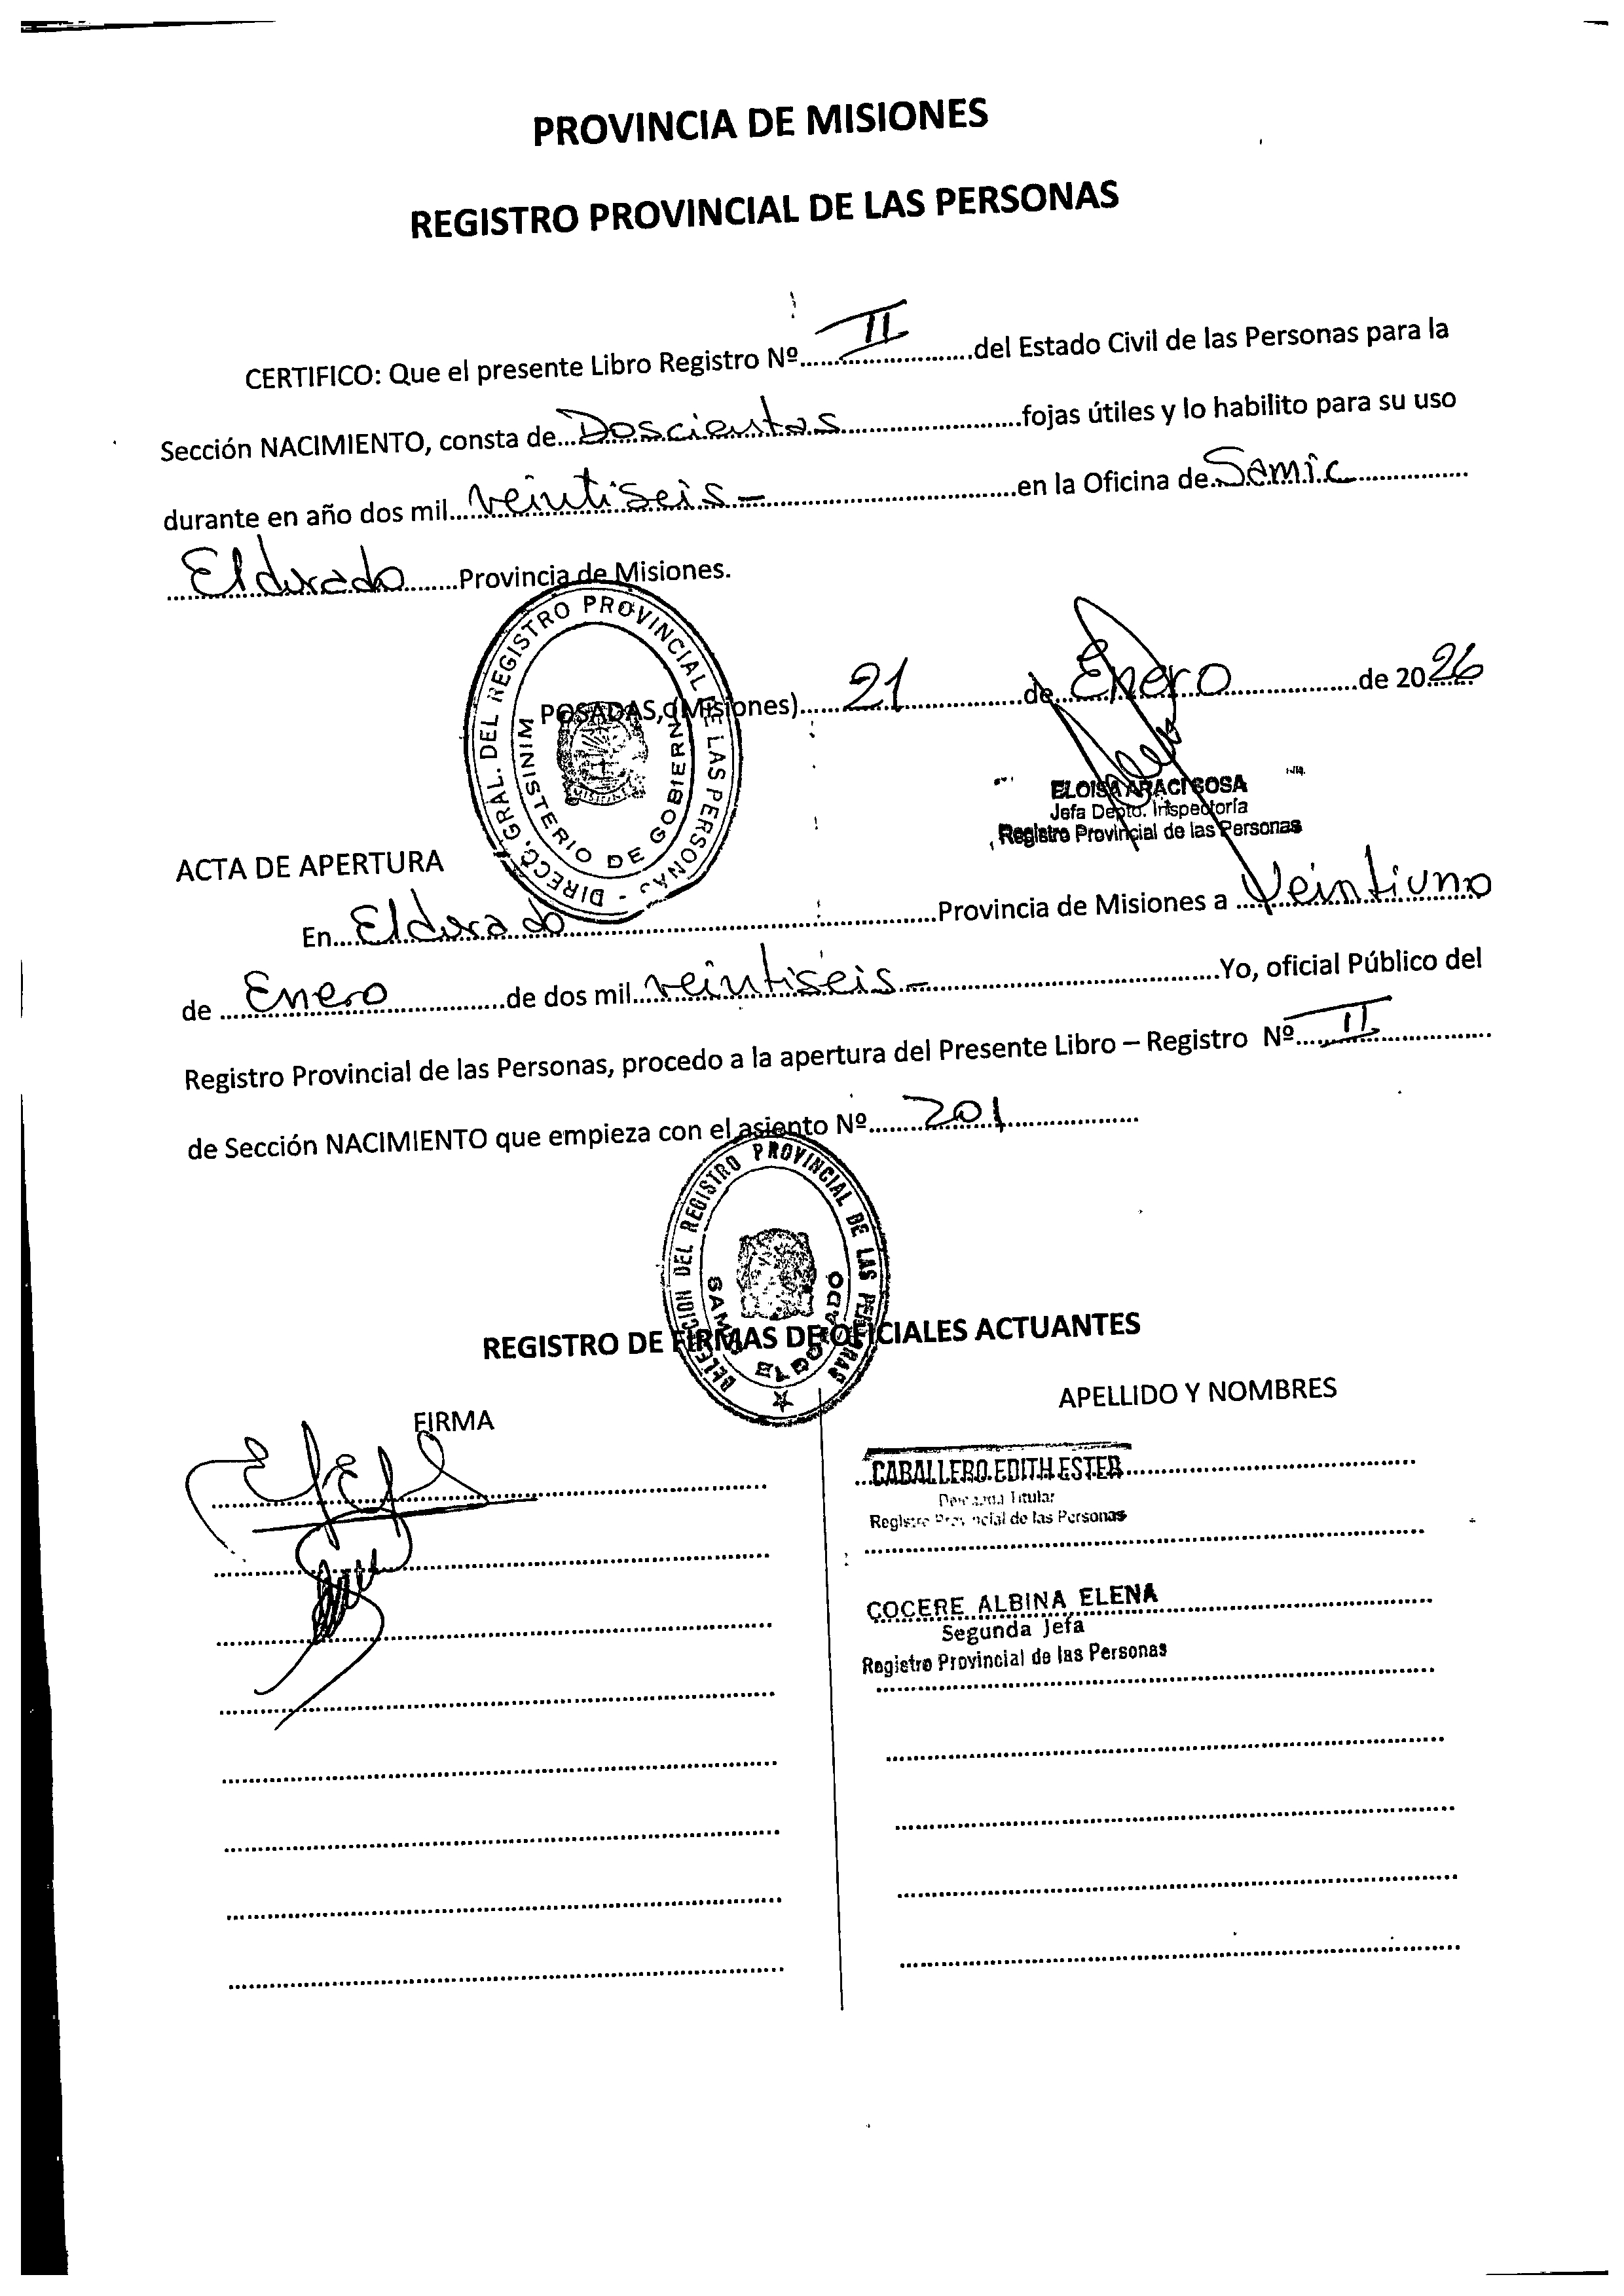 PROVINCIA DE MISIONES
REGISTRO PROVINCIAL DE LAS PERSONAS
CERTIFICO: Que el presente Libro Registro Nº II del Estado Civil de las Personas para la
Sección NACIMIENTO, consta de Doscientas fojas útiles y lo habilito para su uso
durante en año dos mil veintiseis- en la Oficina de Samic
Eldorado Provincia de Misiones.
DIRECC. GRAL. DEL REGISTRO PROVINCIAL DE LAS PERSONAS -
MINISTERIO DE GOBIERNO
MISIONES
POSADAS, (Misiones) 21 de Enero de 2026
ELOISA ARACI SOSA
Jefa Depto. Inspectoría
Registro Provincial de las Personas
ACTA DE APERTURA
En Eldorado Provincia de Misiones a Veintiuno
de Enero de dos mil veintiseis- Yo, oficial Público del
Registro Provincial de las Personas, procedo a la apertura del Presente Libro – Registro Nº II
de Sección NACIMIENTO que empieza con el asiento Nº 201
DELEGACION DEL REGISTRO PROVINCIAL DE LAS PERSONAS
SAMIC ELDORADO
REGISTRO DE FIRMAS DE OFICIALES ACTUANTES
FIRMA
APELLIDO Y NOMBRES
CABALLERO EDITH ESTER
Titular
Registro Provincial de las Personas
COCERE ALBINA ELENA
Segunda Jefa
Registro Provincial de las Personas